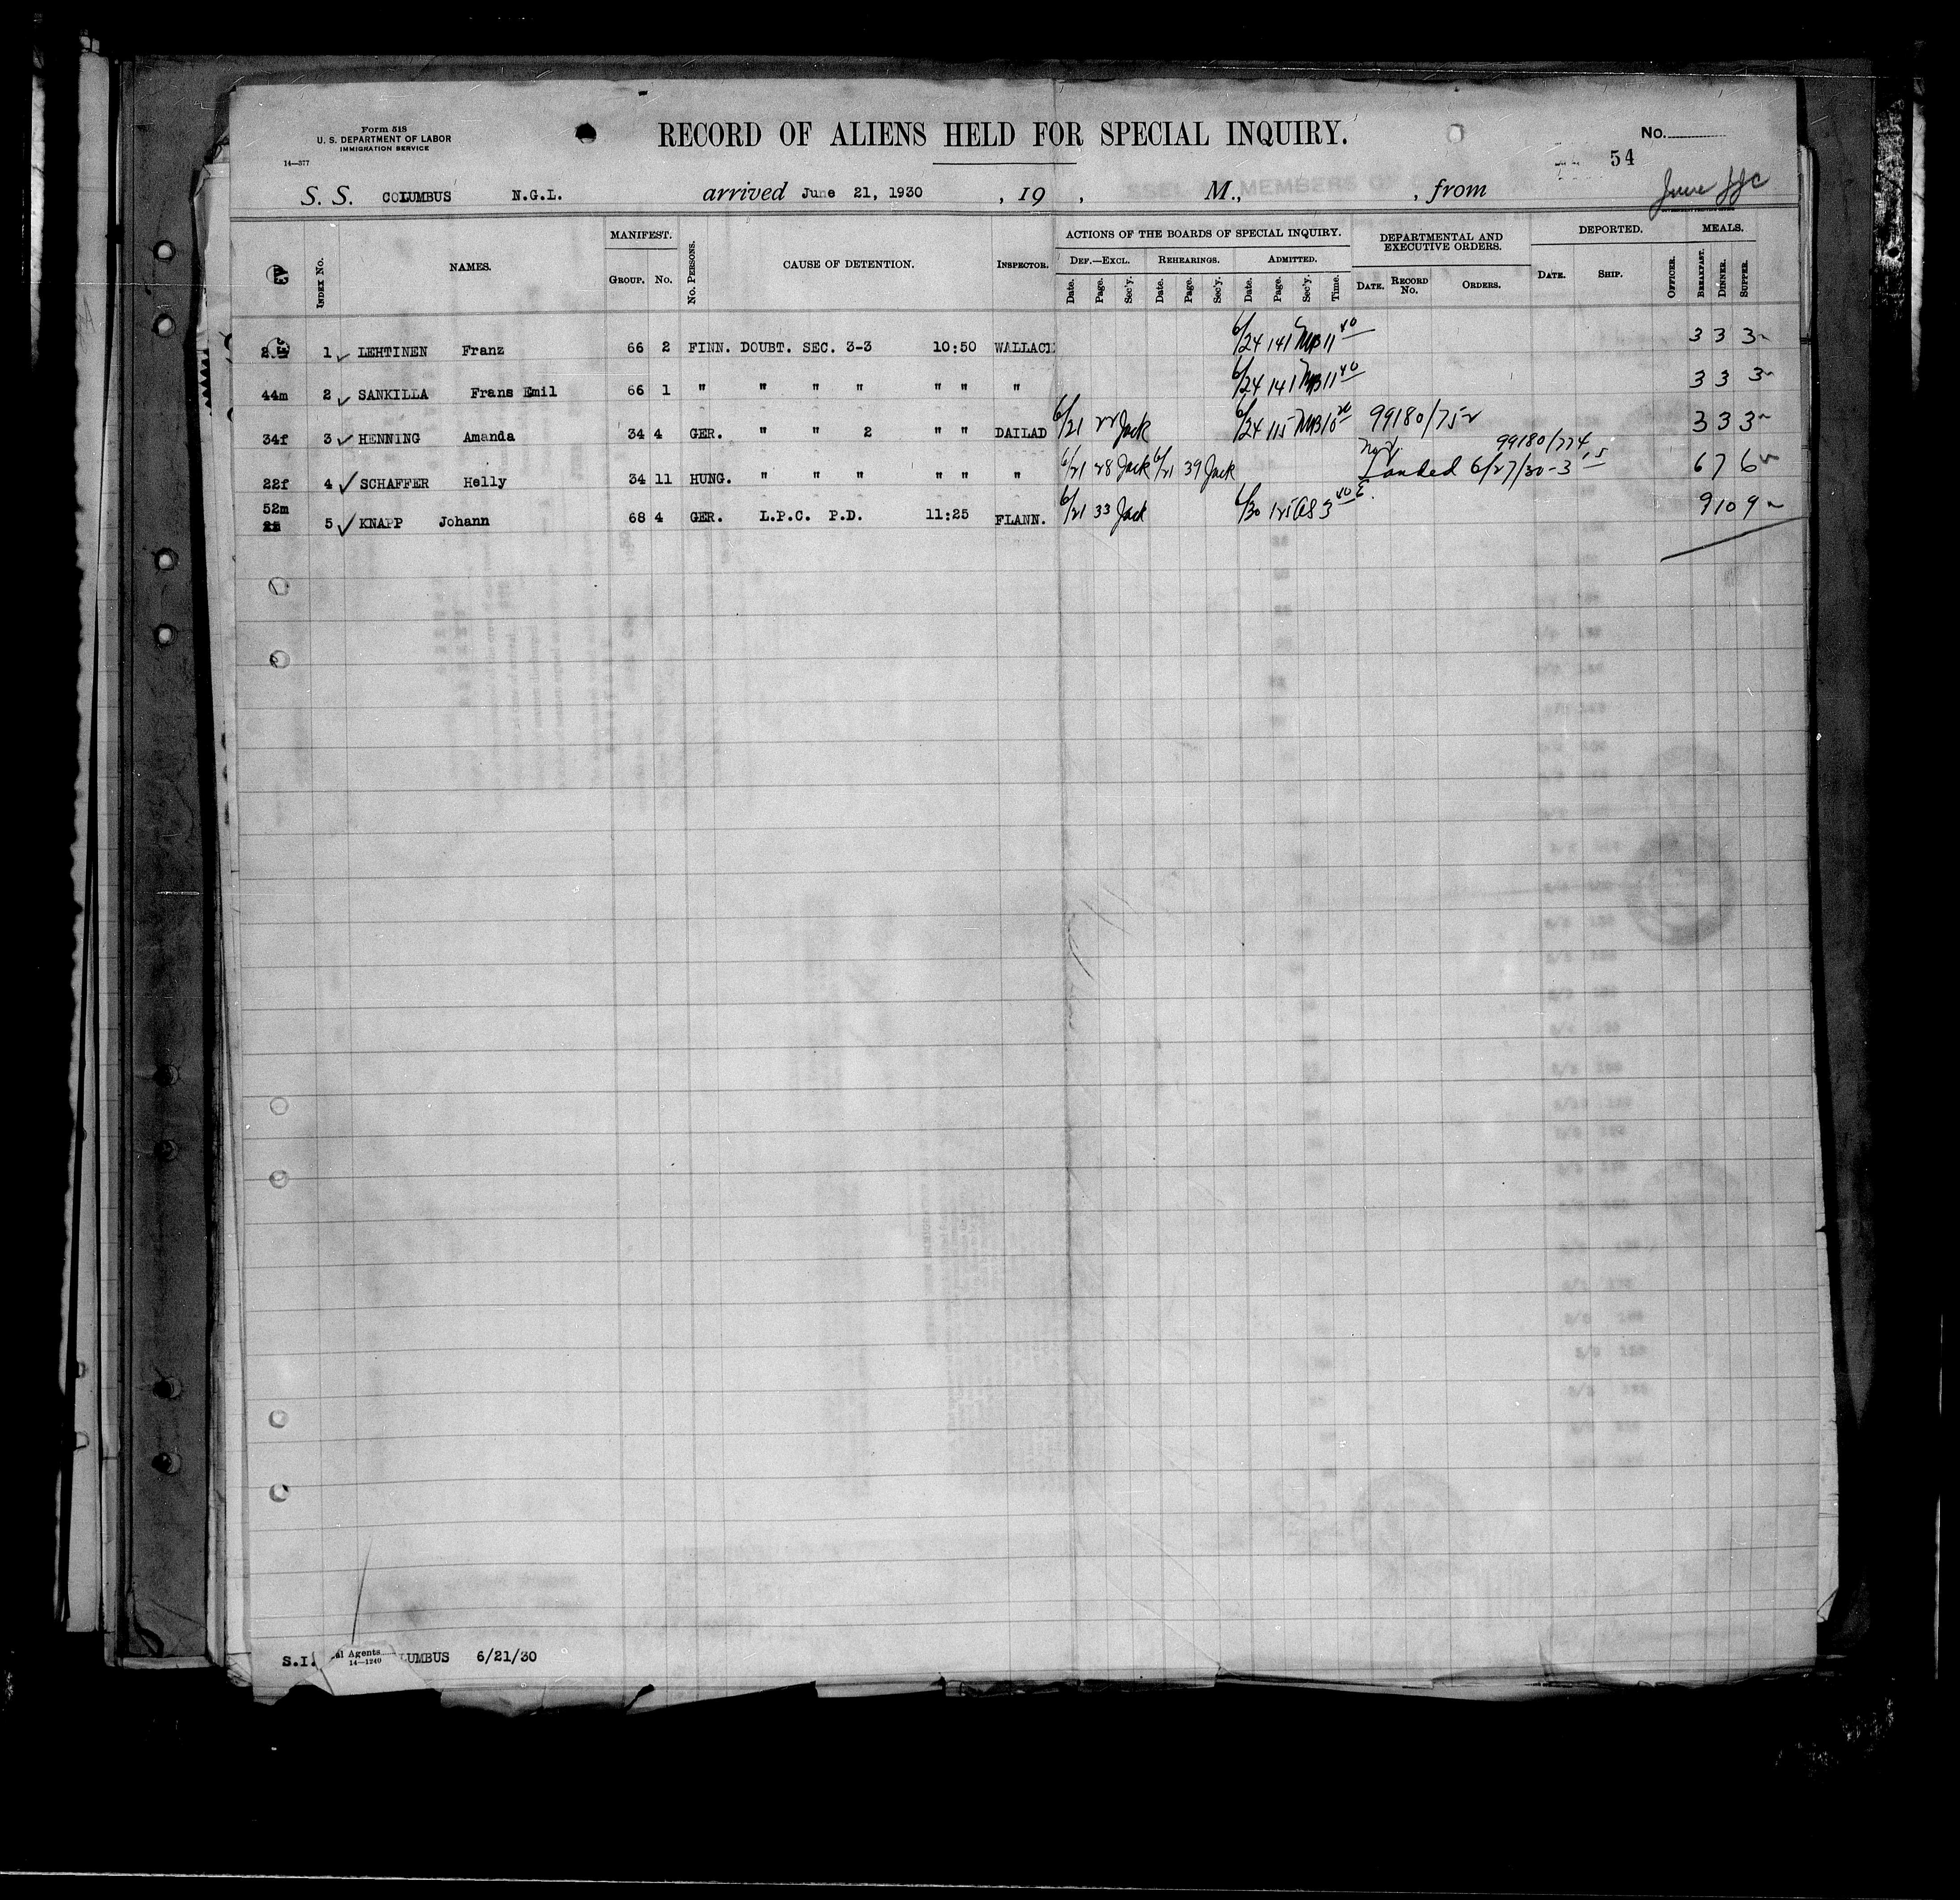 Form 518
U. S. DEPARTMENT OF LABOR
IMMIGRATION SERVICE
14—377
RECORD OF ALIENS HELD FOR SPECIAL INQUIRY.
No.
54
S. S. COLUMBUS N.G.L. arrived June 21, 1930 , 19 , M., , from
INDEX No. NAMES. MANIFEST. GROUP. No. No. PERSONS. CAUSE OF DETENTION. INSPECTOR.
ACTIONS OF THE BOARDS OF SPECIAL INQUIRY.
DEF.—EXCL. REHEARINGS. ADMITTED.
Date. Page. Sec'y. Date. Page. Sec'y. Date. Page. Sec'y. Time.
DEPARTMENTAL AND EXECUTIVE ORDERS.
DATE. RECORD No. ORDERS.
DEPORTED.
DATE. SHIP. OFFICER.
MEALS.
BREAKFAST. DINNER. SUPPER.
1 LEHTINEN Franz 66 2 FINN. DOUBT. SEC. 3-3 10:50 WALLACE 6/24 141 11 40 3 3 3
44m 2 SANKILLA Frans Emil 66 1 " " " " " " " 6/24 141 11 40 3 3 3
34f 3 HENNING Amanda 34 4 GER. " " 2 " " DAILAD 6/21 22 Jack 6/24 115 99180/752 3 3 3
99180/774
22f 4 SCHAFFER Helly 34 11 HUNG. " " " " " " 6/21 28 Jack 6/21 39 Jack Landed 6/27/30-3 15 6 7 6
52m
5 KNAPP Johann 68 4 GER. L.P.C. P.D. 11:25 FLANN. 6/21 33 Jack 6/30 3 40 9 10 9
S.I. al Agents LUMBUS 6/21/30
14—1240